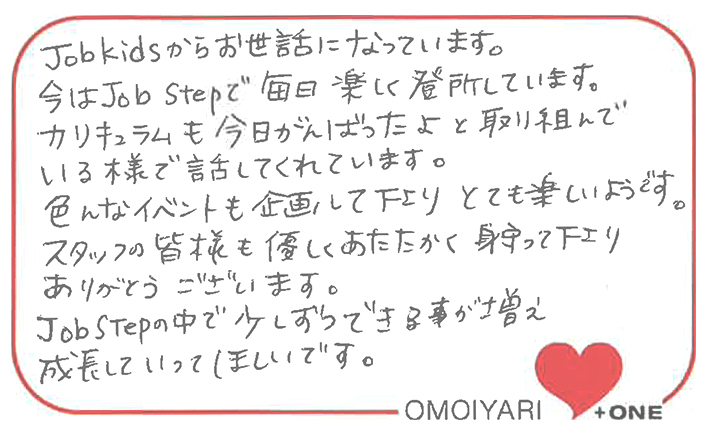 Jobkidsからお世話になっています。
今はJob Stepで毎日楽しく登所しています。
カリキュラムも今日がんばったよと取り組んで
いる様で話してくれています。
色んなイベントも企画して下さりとても楽しいようです。
スタッフの皆様も優しくあたたかく見守って下さり
ありがとうございます。
JobStepの中で少しずつできる事が増え
成長していってほしいです。
OMOIYARI +ONE